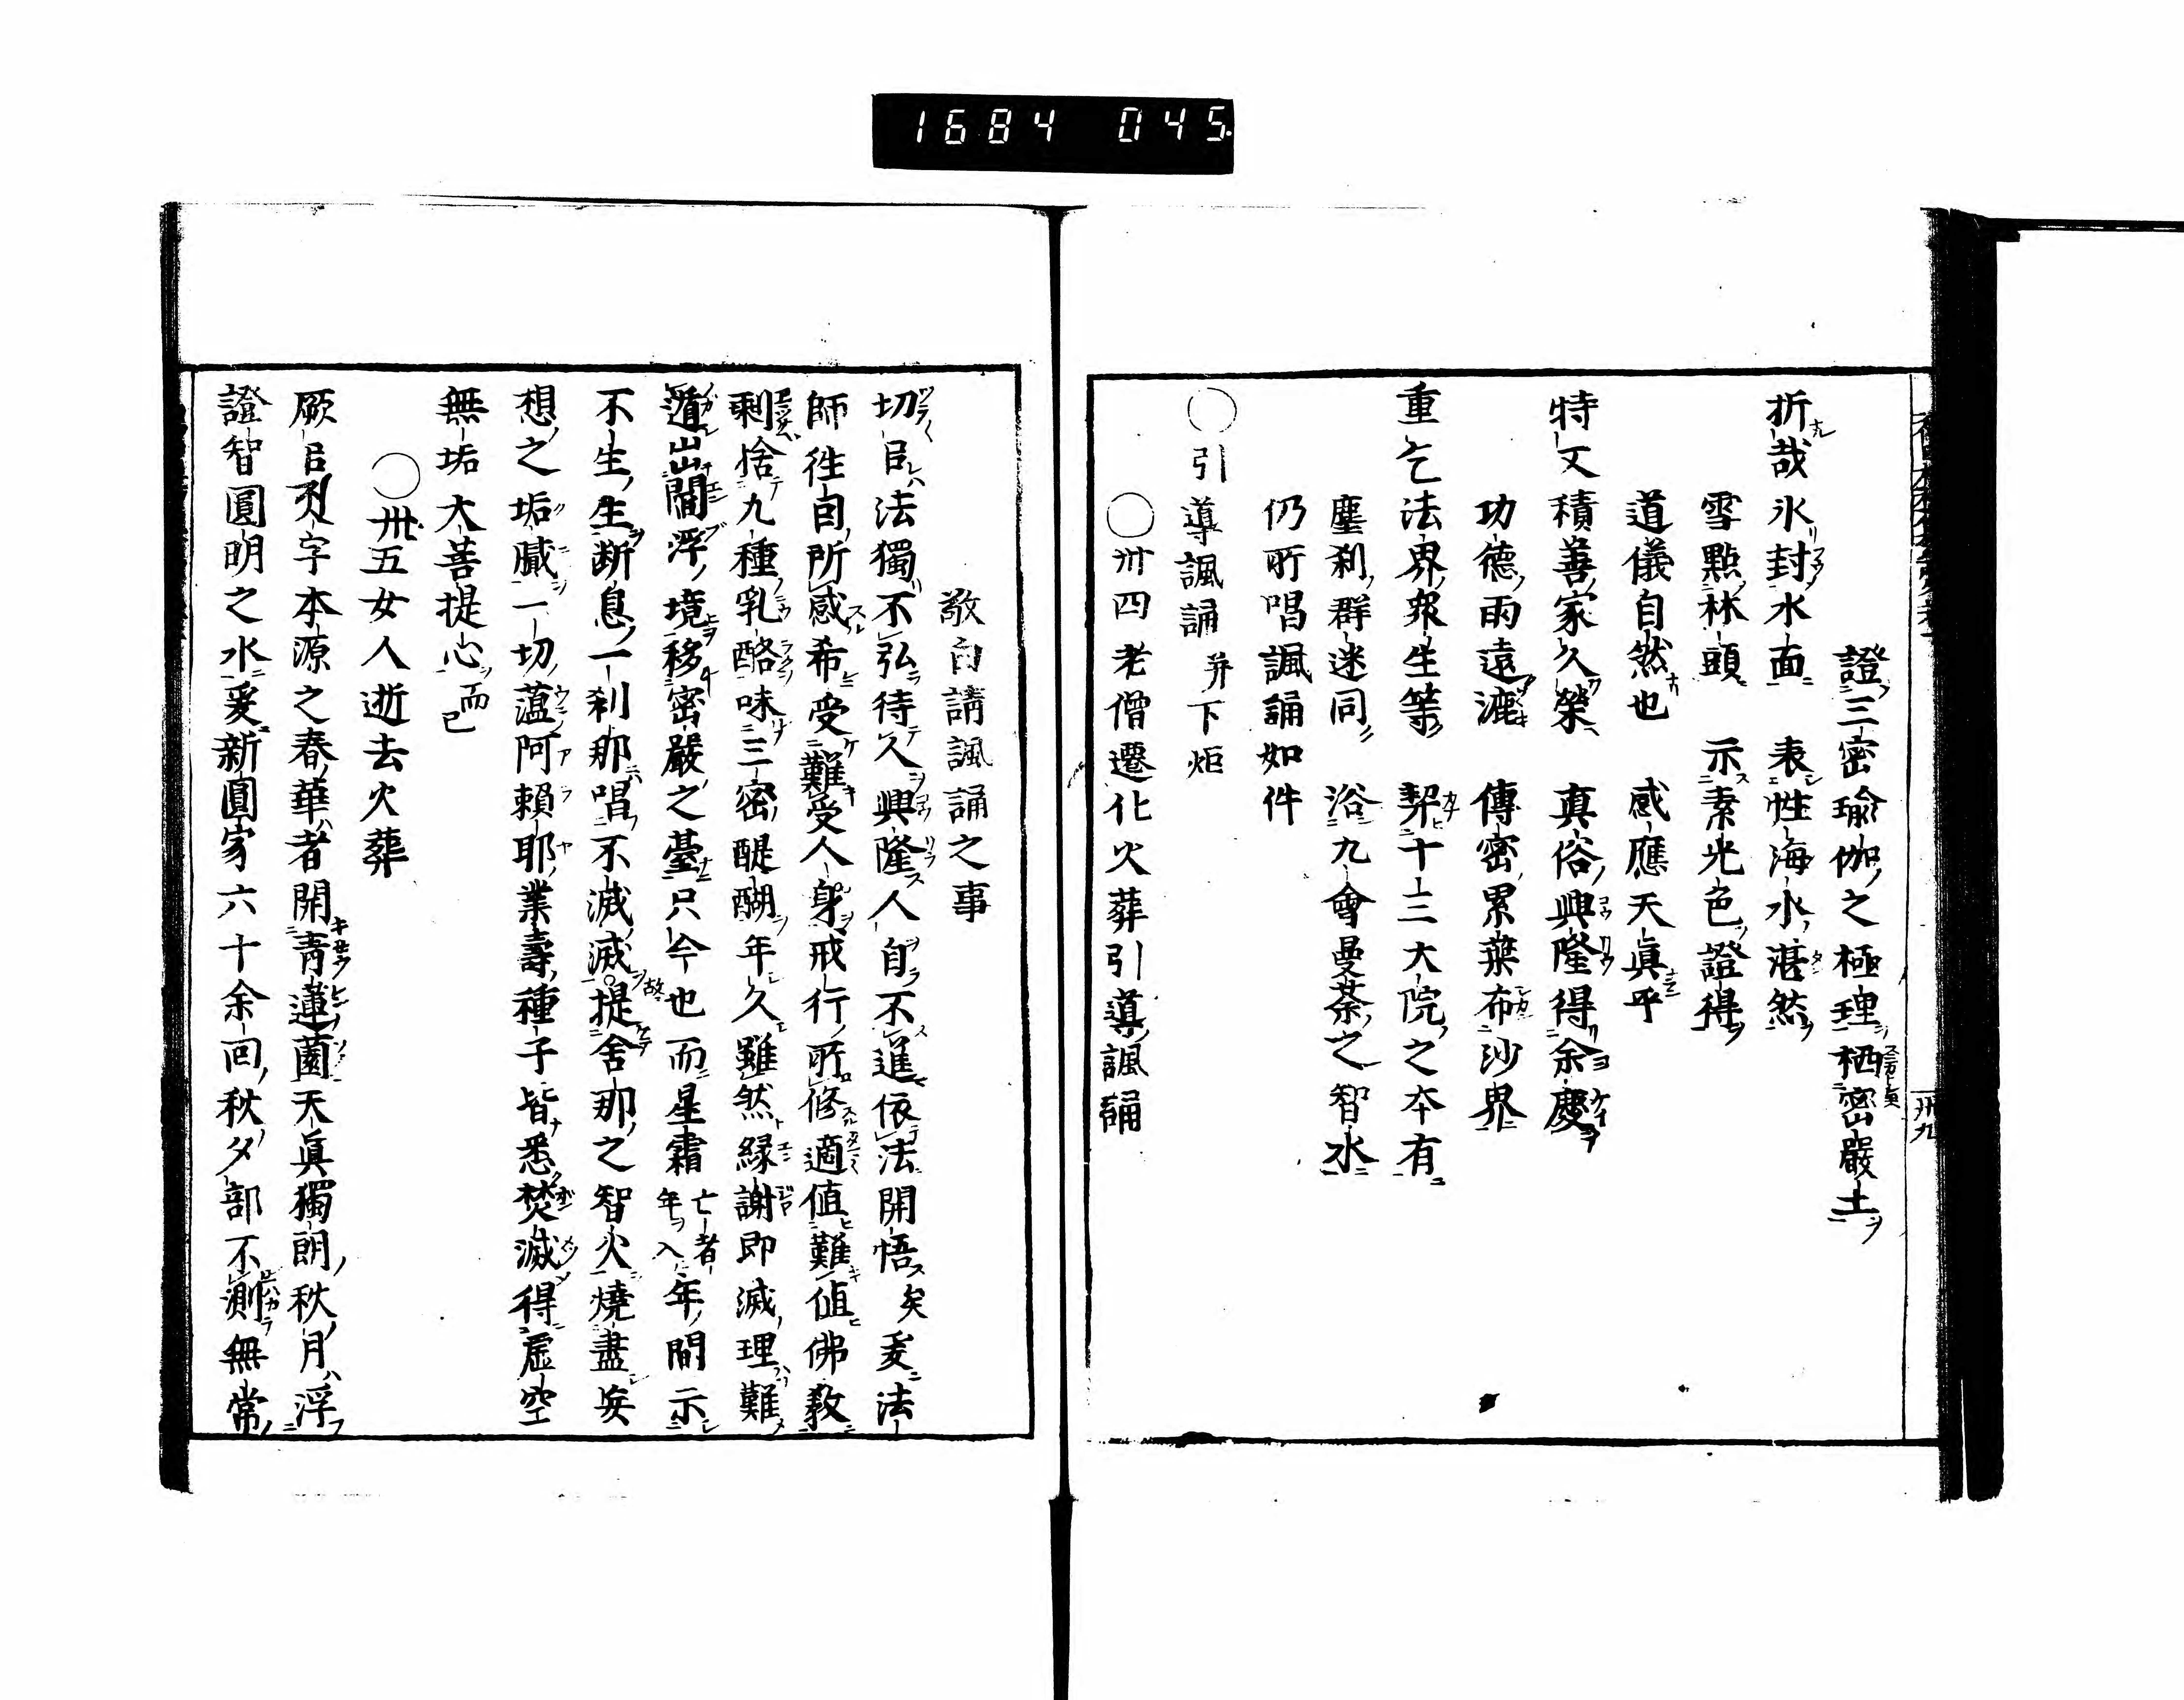 1684 045
證三密瑜伽之極理栖密嚴土
折哉氷封水面 表性海水湛然
雪點林頭 示素光色證得
道儀自然也 感應天眞乎
特文積善家久榮 真俗興隆得余慶
功德雨遠灑 傳密累葉布沙界
重乞法界衆生等 契十三大院之本有
塵刹群迷同 浴九會曼荼之智水
仍所唱諷誦如件
○引導諷誦并下炬
○卅四老僧遷化火葬引導諷誦
卅九
敬白請諷誦之事
切㠯法獨不弘待久興隆人自不進依法開悟矣爰法
師徃因所感希受難受人身戒行所修適値難値佛教
剩捨九種乳酪味三密醍醐年久雖然緣謝即滅理難
遁出閻浮境移密嚴之臺只今也而星霜亡者年入年間示
不生生断息一刹那唱不滅滅故提舍那之智火燒盡妄
想之垢臓一切薀阿賴耶業壽種子皆悉焚滅得虛空
無垢大菩提心而已
○卅五女人逝去火葬
厥㠯字本源之春華者開靑蓮薗天眞獨朗秋月浮
證智圓明之水爰新圓家六十余回秋夕部不測無常